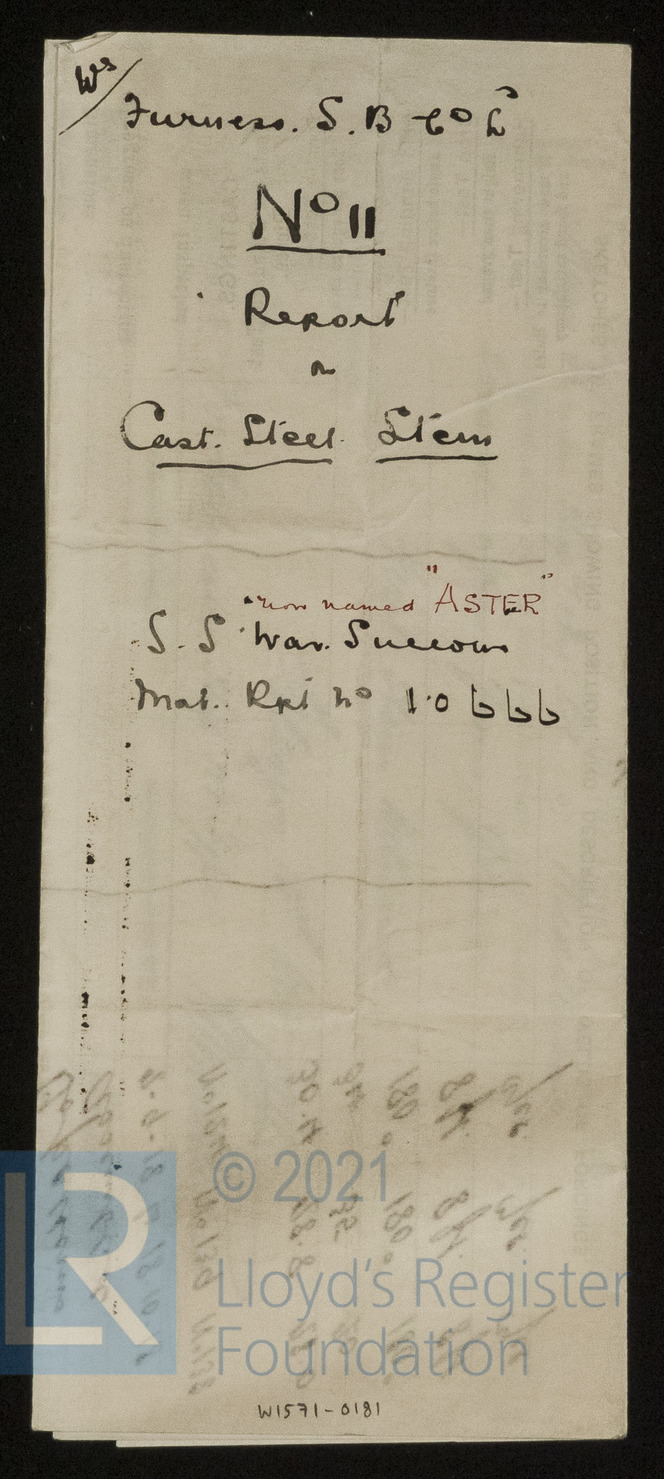 Ws/
Furness. S. B & Co Ld
No 11
Report
on
Cast. Steel. Stem
"now named "ASTER"
S. S "War. Succour
Mat. Rpt no 10666
© 2021
Lloyd's Register
Foundation
W1571-0181